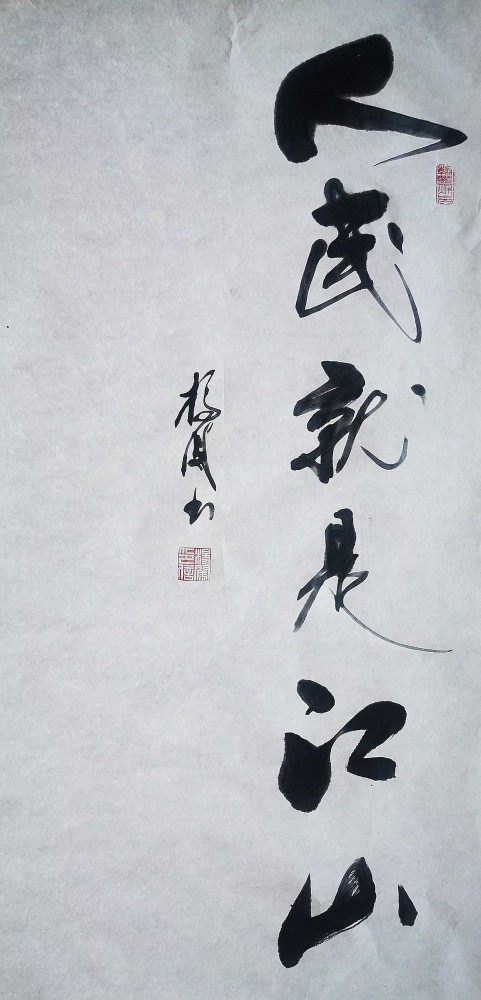 人民就是江山
书